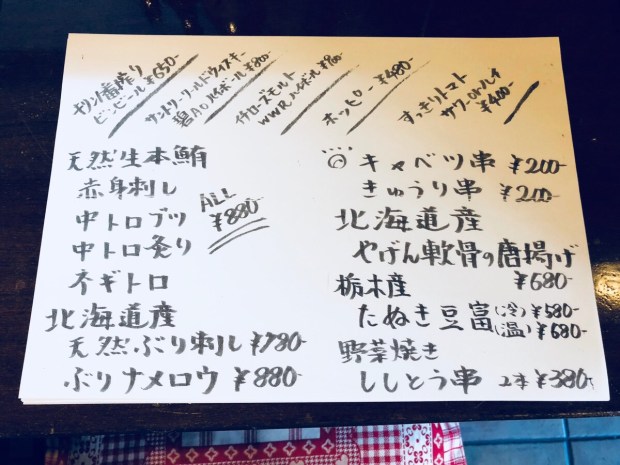 キリン一番搾り
ビンビール ¥650-
サントリーワールドウィスキー
碧Aoハイボール ¥800-
イチローズモルト
WWRハイボール ¥900
ホッピー ¥480-
すっきりトマト
サワーorハイ
¥400-
天然生本鮪
赤身刺し
中トロブツ
中トロ炙り
ネギトロ
ALL
¥880-
北海道産
天然ぶり刺し ¥780-
ぶりナメロウ ¥880-
キャベツ串 ¥200-
きゅうり串 ¥200-
北海道産
やげん軟骨の唐揚げ
¥680-
栃木産
たぬき豆富 (冷) ¥580-
(温) ¥680-
野菜焼き
ししとう串 2本 ¥380-